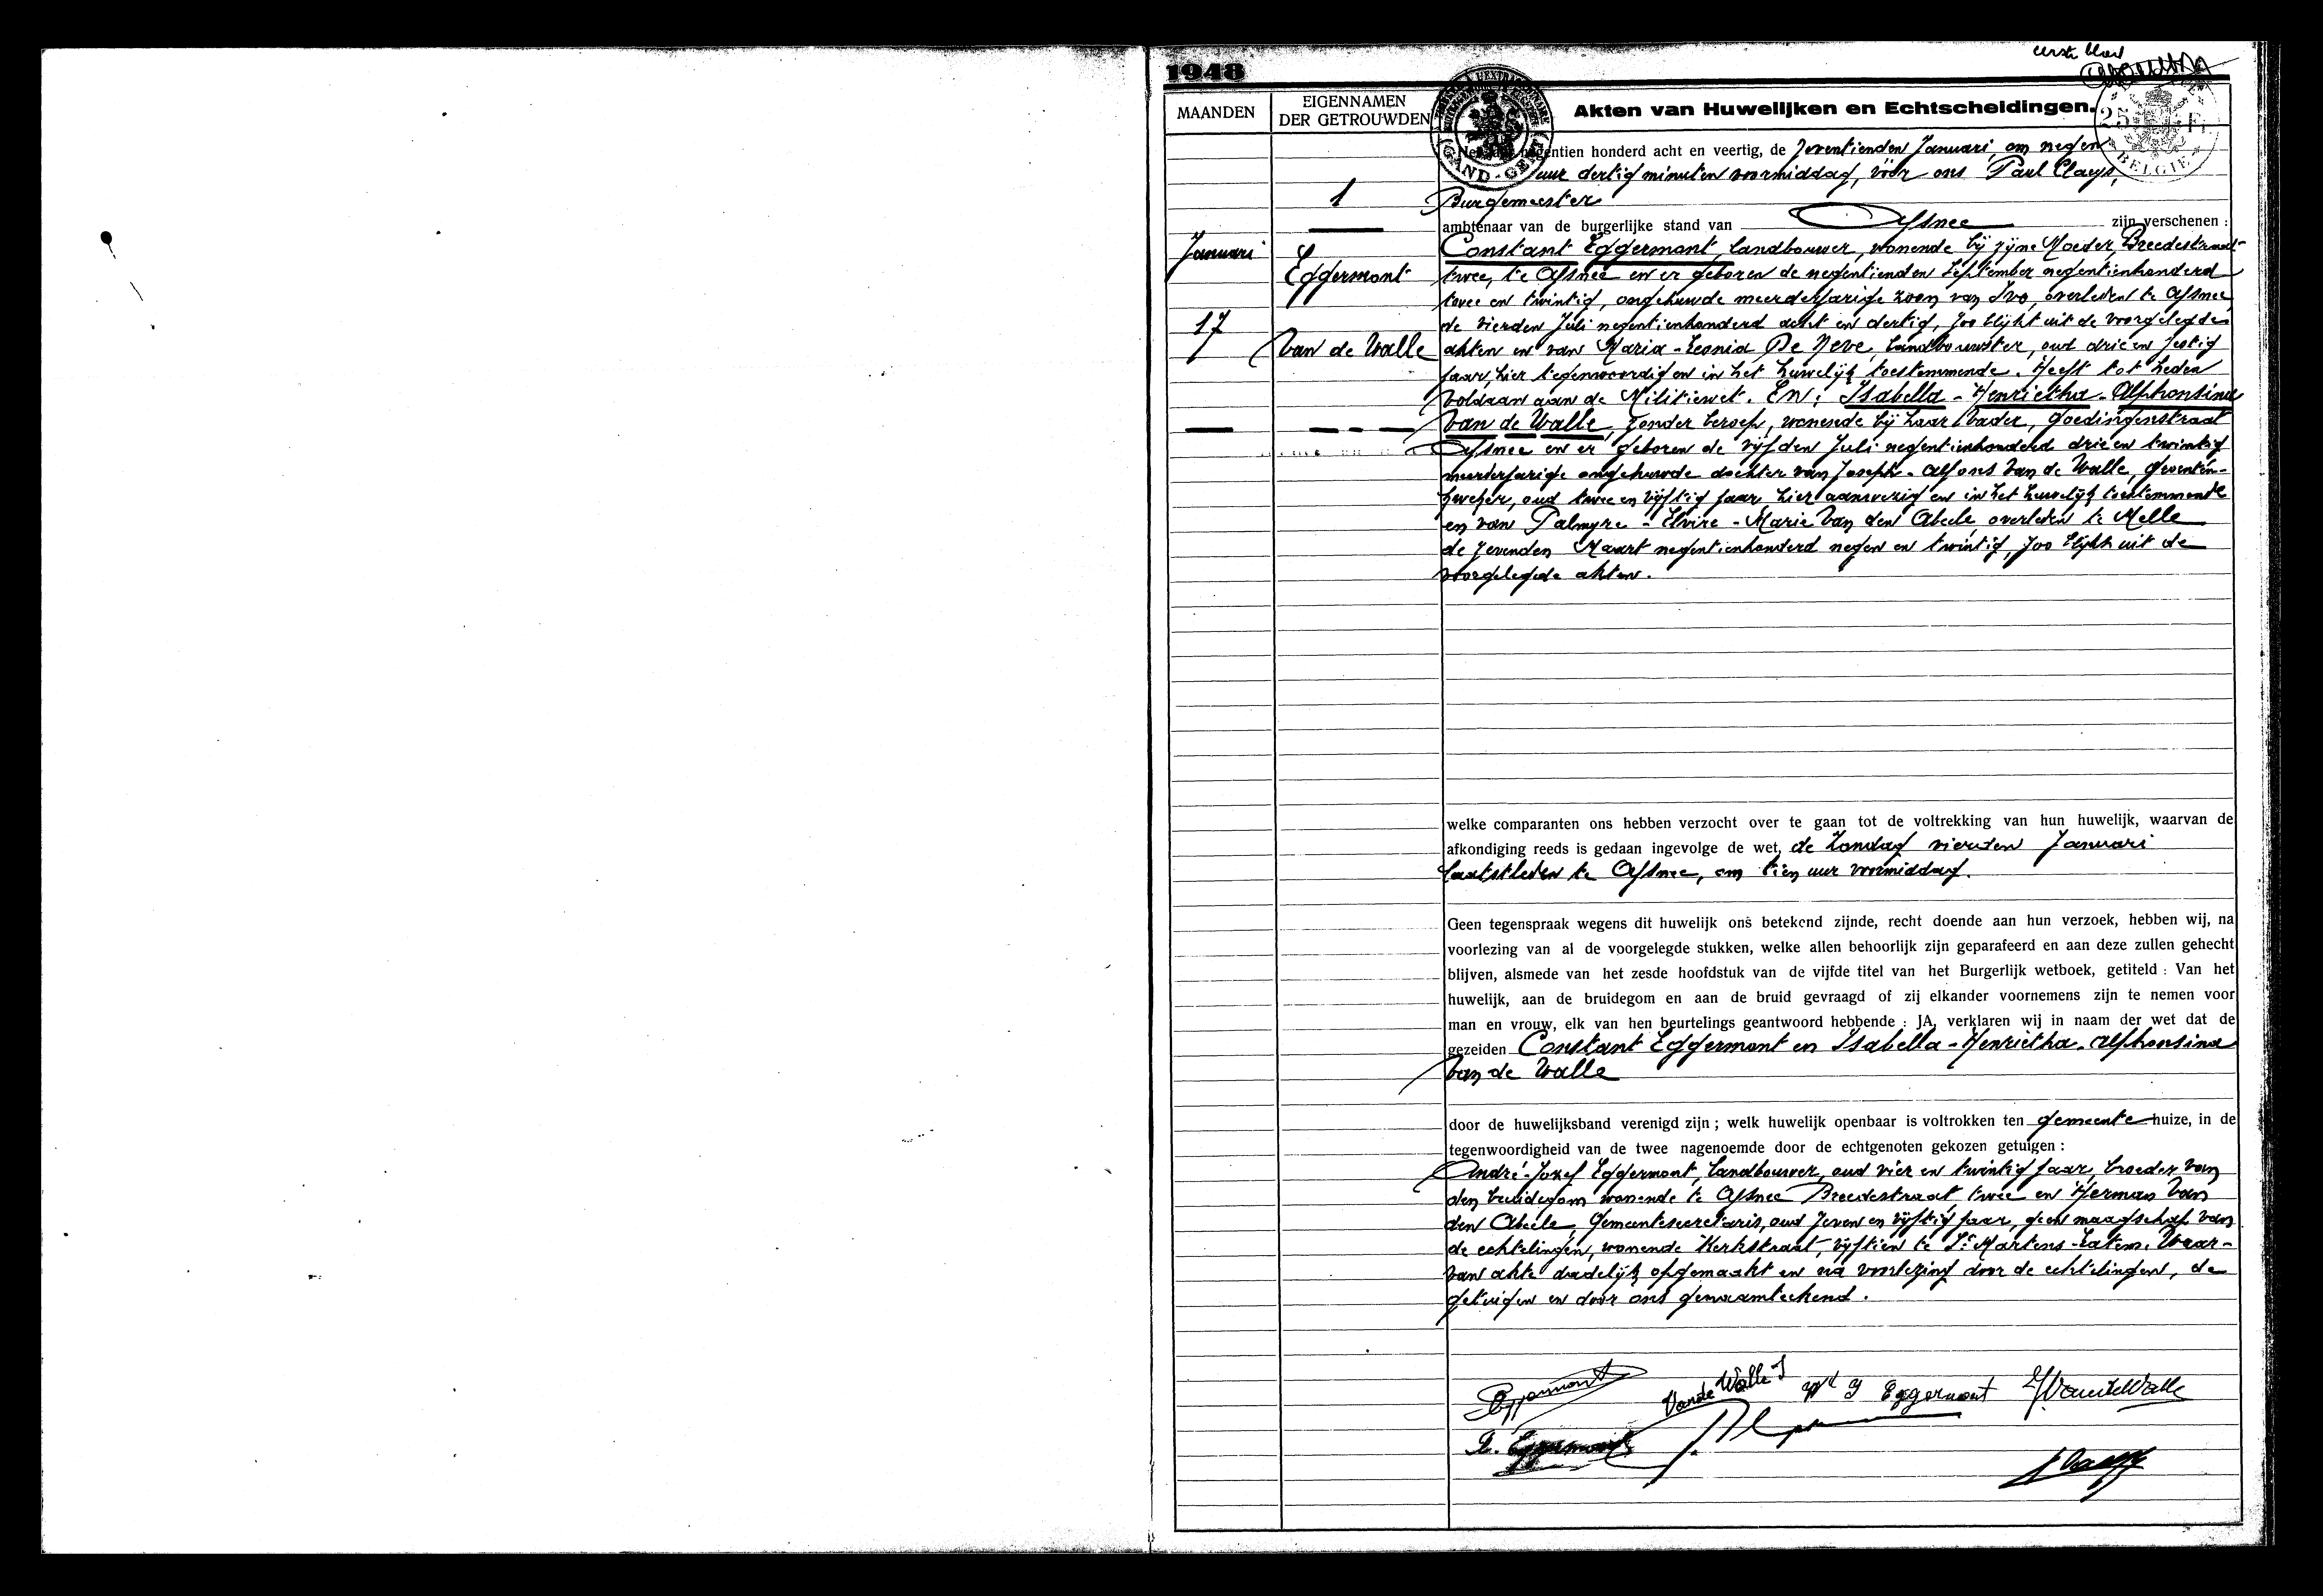 eerste blad
1948
MAANDEN
EIGENNAMEN
DER GETROUWDEN
Akten van Huwelijken en Echtscheidingen.
25 Fr
BELGIE
GAND-GENT
negentien honderd acht en veertig, de zeventienden Januari, om negen
uur dertig minuten voormiddag, vóór ons Paul Claeys,
1
Burgemeester
ambtenaar van de burgerlijke stand van Afsnee zijn verschenen :
Januari
Eggermont
17
Van de Walle
Constant Eggermont, landbouwer, wonende bij zijne Moeder, Breedestraat
twee, te Afsnee en er geboren de negentienden September negentienhonderd
twee en twintig, ongehuwde meerderjarige zoon van Ivo, overleden te Afsnee
de vierden Juli negentienhonderd acht en dertig, zoo blijkt uit de voorgelegde
akten en van Maria-Leonia De Neve, landbouwster, oud drie en zestig
jaar, hier tegenwoordig en in het huwelijk toestemmende. Heeft tot heden
voldaan aan de Militiewet. En: Isabella-Henrietha-Alphonsina
Van de Walle, zonder beroep, wonende bij haar Vader, Goedingenstraat
Afsnee en er geboren de vijfden Juli negentienhonderd drie en twintig
meerderjarige ongehuwde dochter van Joseph-Alfons Van de Walle, groenten-
kweker, oud twee en vijftig jaar hier aanwezig en in het huwelijk toestemmende
en van Palmyre-Elvire-Marie Van den Abeele overleden te Melle
de zevenden Maart negentienhonderd negen en twintig, zoo blijkt uit de
voorgelegde akten.
welke comparanten ons hebben verzocht over te gaan tot de voltrekking van hun huwelijk, waarvan de
afkondiging reeds is gedaan ingevolge de wet, de Zondag vierden Januari
laatstleden te Afsnee, om tien uur voormiddag.
Geen tegenspraak wegens dit huwelijk ons betekend zijnde, recht doende aan hun verzoek, hebben wij, na
voorlezing van al de voorgelegde stukken, welke allen behoorlijk zijn geparafeerd en aan deze zullen gehecht
blijven, alsmede van het zesde hoofdstuk van de vijfde titel van het Burgerlijk wetboek, getiteld : Van het
huwelijk, aan de bruidegom en aan de bruid gevraagd of zij elkander voornemens zijn te nemen voor
man en vrouw, elk van hen beurtelings geantwoord hebbende : JA, verklaren wij in naam der wet dat de
gezeiden Constant Eggermont en Isabella-Henrietha-Alphonsina
Van de Walle
door de huwelijksband verenigd zijn ; welk huwelijk openbaar is voltrokken ten gemeente huize, in de
tegenwoordigheid van de twee nagenoemde door de echtgenoten gekozen getuigen :
André-Jozef Eggermont, landbouwer, oud vier en twintig jaar, broeder van
den bruidegom wonende te Afsnee Breedestraat, twee en Herman Van
den Abeele, Gemeentesecretaris, oud zeven en vijftig jaar, geen maagschap van
de echtelingen, wonende Kerkstraat, vijftien te St Martens-Latem. Waar-
van akte dadelijk opgemaakt en na voorlezing door de echtelingen, de
getuigen en door ons genaamteekend.
Eggermont Van de Walle I Wd I Eggermont J VandeWalle
Eggermont